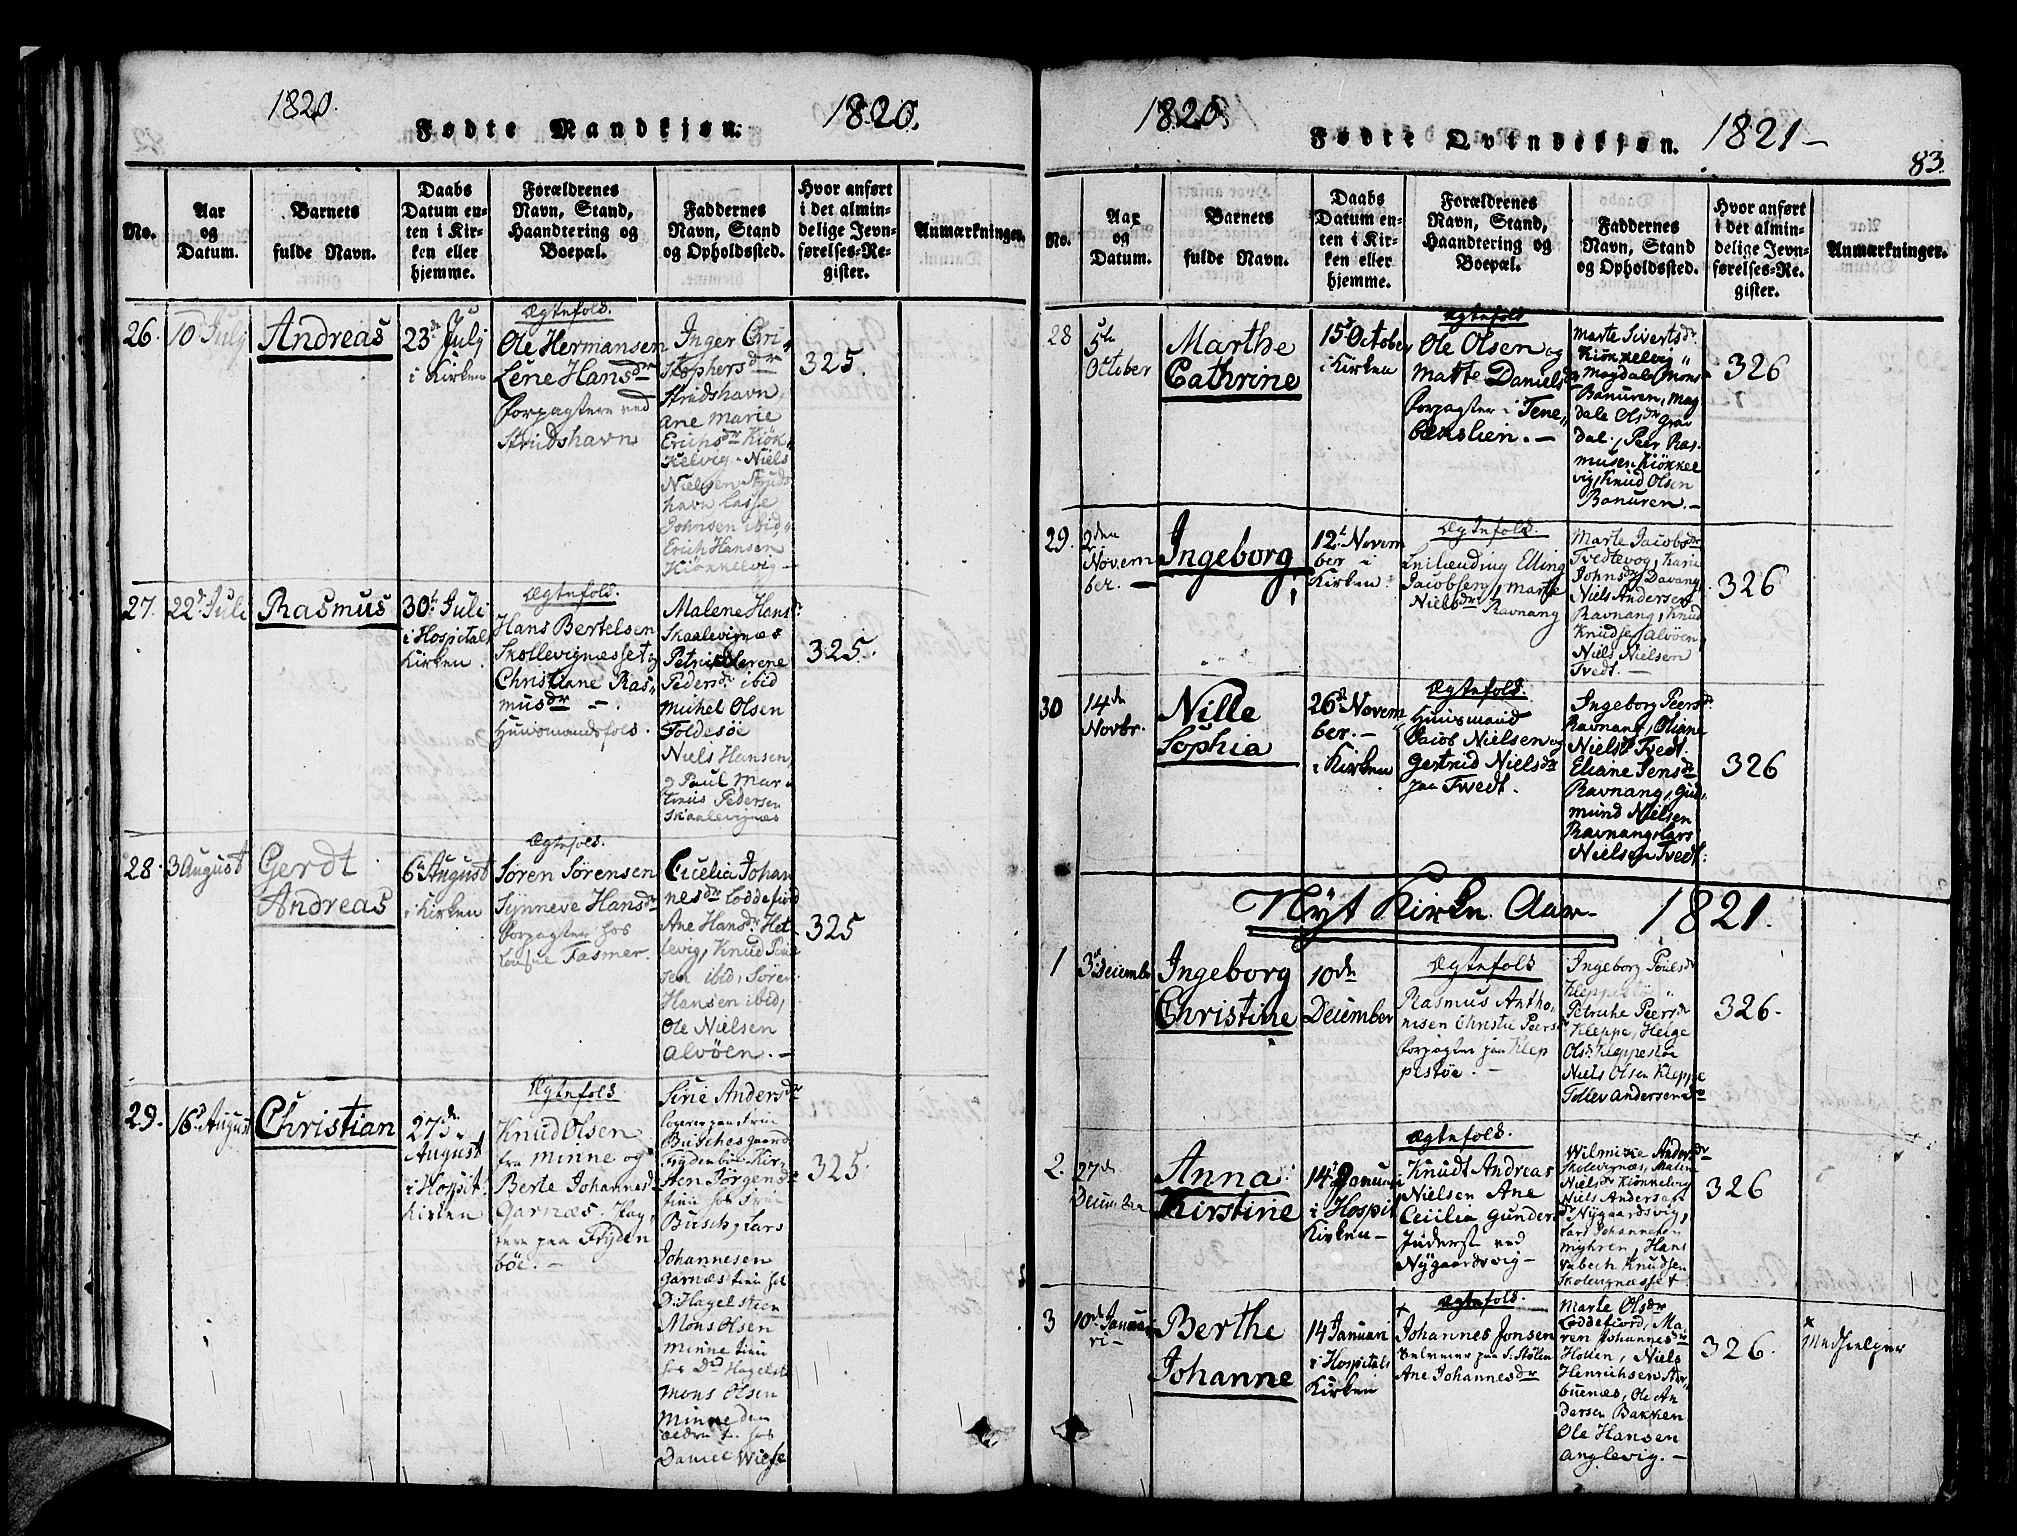 1820.
Fødte Mandkjøn.
1820.
No.
Aar
og
Datum.
Barnets
fulde Navn.
Daabs
Datum en-
ten i Kir-
ken eller
hjemme.
Forældrenes
Navn, Stand,
Haandtering og
Boepæl.
Faddernes
Navn, Stand
og Opholdssted.
Hvor anført
i det almin-
delige Jevn-
førelses-Re-
gister.
Anmærkninger.
26.
10 Julj
Andreas
23de Julj
i Kirken
Ægtefolk.
Ole Hermansen
Lene Hansdr
Forpagtere ved
Strudshavn
Inger Chri
stophersdr
Strudshavn
Ane Marie
Erichsdr Kiök
kelvig. Niels
Nielsen Struds
havn Lasse
Johnsen ibid,
Erich Hansen
Kiökkelvig -
325.
27.
22d Juli
Rasmus
30te Juli
i Hospitals
Kirken.
Ægtefolk.
Hans Bertelsen
Skollevignæsset og
Christiane Ras„
musdr -
Huusmandsfolk.
Malene Hansdr
Skaalevignæs
Petri Serene
Pedersdr ibid
Michel Olsen
Foldesöe
Niels Hansen
og Paul Mar
tinus Pedersen
Skaalevignæs
325.
28.
3 August
Gerdt
Andreas
6te August
i Kirken
Ægtefolk.
Søren Sørensen
Synneve Hansdr
Forpagter hos
Fasmer.
Cicelia Johan
nesdr Loddefiord
Ane Hansdr Het
levig, Knud Poul
sen ibid, Sören
Hansen ibid,
Ole Nielsen
Alvöen. -
325
29.
16d August
Christian
27de
August
i Hospit.
Kirken
Ægtefolk
Knud Olsen
fra Minne og
Berte Johannesdr
Garnæs. Pag„
tere paa Fryden
böe. -
Sirie Andersdr
Logerer paa
Butchesgaard
Frydenböe. Kir„
sten Jörgensdr
tien hos Frie
Busch, Lars
Johannesen
Garnæs tien hos
D. Hagelsteen
Mons Olsen
Minne tien
hos Dd Hagelst
Mons Olsen
Minne den
ældre t. hos
Daniel Wiese
325
1820.
Fødte Qvindekjøn.
1821-
83.
No.
Aar
og
Datum.
Barnets
fulde Navn.
Daabs
Datum en-
ten i Kir-
ken eller
hjemme.
Forældrenes
Navn, Stand,
Haandtering og
Boepæl.
Faddernes
Navn, Stand
og Opholdssted.
Hvor anført
i det almin-
delige Jevn-
førelses-Re-
gister.
Anmærkninger.
28
5te
October
Marthe
Cathrine
15d October
i Kirken
Ægtefolk
Ole Olsen og
Marte Danielsdr
Forpagter i Tene„
bekslien. -
Marte Sivertsdr
Kiökkelvig
Magdale Mons
Bonuren, Mag
dale Olsdr Grav
dal., Peer Ras-
musen Kiökkel
vig, Knud Olsen
Bonuren. -
326
29.
2den
Novem
ber. -
Ingeborg
12te Novem
ber i
Kirken
Ægtefolk.
Leilænding Elling
Jacobsen, Marte
Nielsdr Ravnang
Marte Jacobsdr
Tvedtevog, Karie
Johnsdr Davang
Niels Andersen
Ravnang, Knud
Knudsen Alvöen
Niels Nielsen
Tvedt. -
326
30
14de
Novbr.
Nille
Sophia
26d Novem
ber. -
i Kirken
Ægtefolk.
Huusmand
Jacob Nielsen og
Gertrud Nielsdr
paa Tvedt.
Ingeborg Peersdr.
Ravnang, Oliane
Niels Tvedt.
Eliane Jensdr
Ravnang, Gud„
mund Nielsen
Ravnang, Lars
Nielsen Tvedt.
326
Nyt Kirke Aar- 1821.
1
3d December
Ingeborg
Christine
10de
December
Ægtefolk
Rasmus Antho„
nisen Christi Peersdr
Forpagter paa Klep
pestöe. -
Ingeborg Poulsdr
Kleppestöe „
Petrithe Peersdr
Kleppe, Helge
Olsdr Kleppestöe
Niels Olsen Kleppe
Tollev Andersen do
326.
2.
27de
December
Anna
Kirstine
14d Januari
i Hospit
Kirken -
Ægtefolk.
Knudt Andreas
Nielsen Ane
Cecilia Gunders
Inderst ved
Nygaardsvig -
Wilmine Andersdr
Skolevignæs, Malene
Nielsdr Kiönnelvig
Niels Andersen
Nygaardsvig,
Lars Johannesen
Myhren, Hans
Vabech Knudsen
Skolevignæsset
326
3
10de Janua
ri -
Berthe
Johanne
14 Januari
i Hospitals
Kirken
Ægtefolk.
Johannes Jonsen
Selveier paa S. Stölen
Ane Johannesdr
Marte Olsdr
Loddefiord, Ma
ren Johannesdr
Hollen, Niels
Henrichsen Ar„
buenæs, Ole An
dersen Bakken
Ole Hansen
Anglevig. -
326.
x
Medhielper